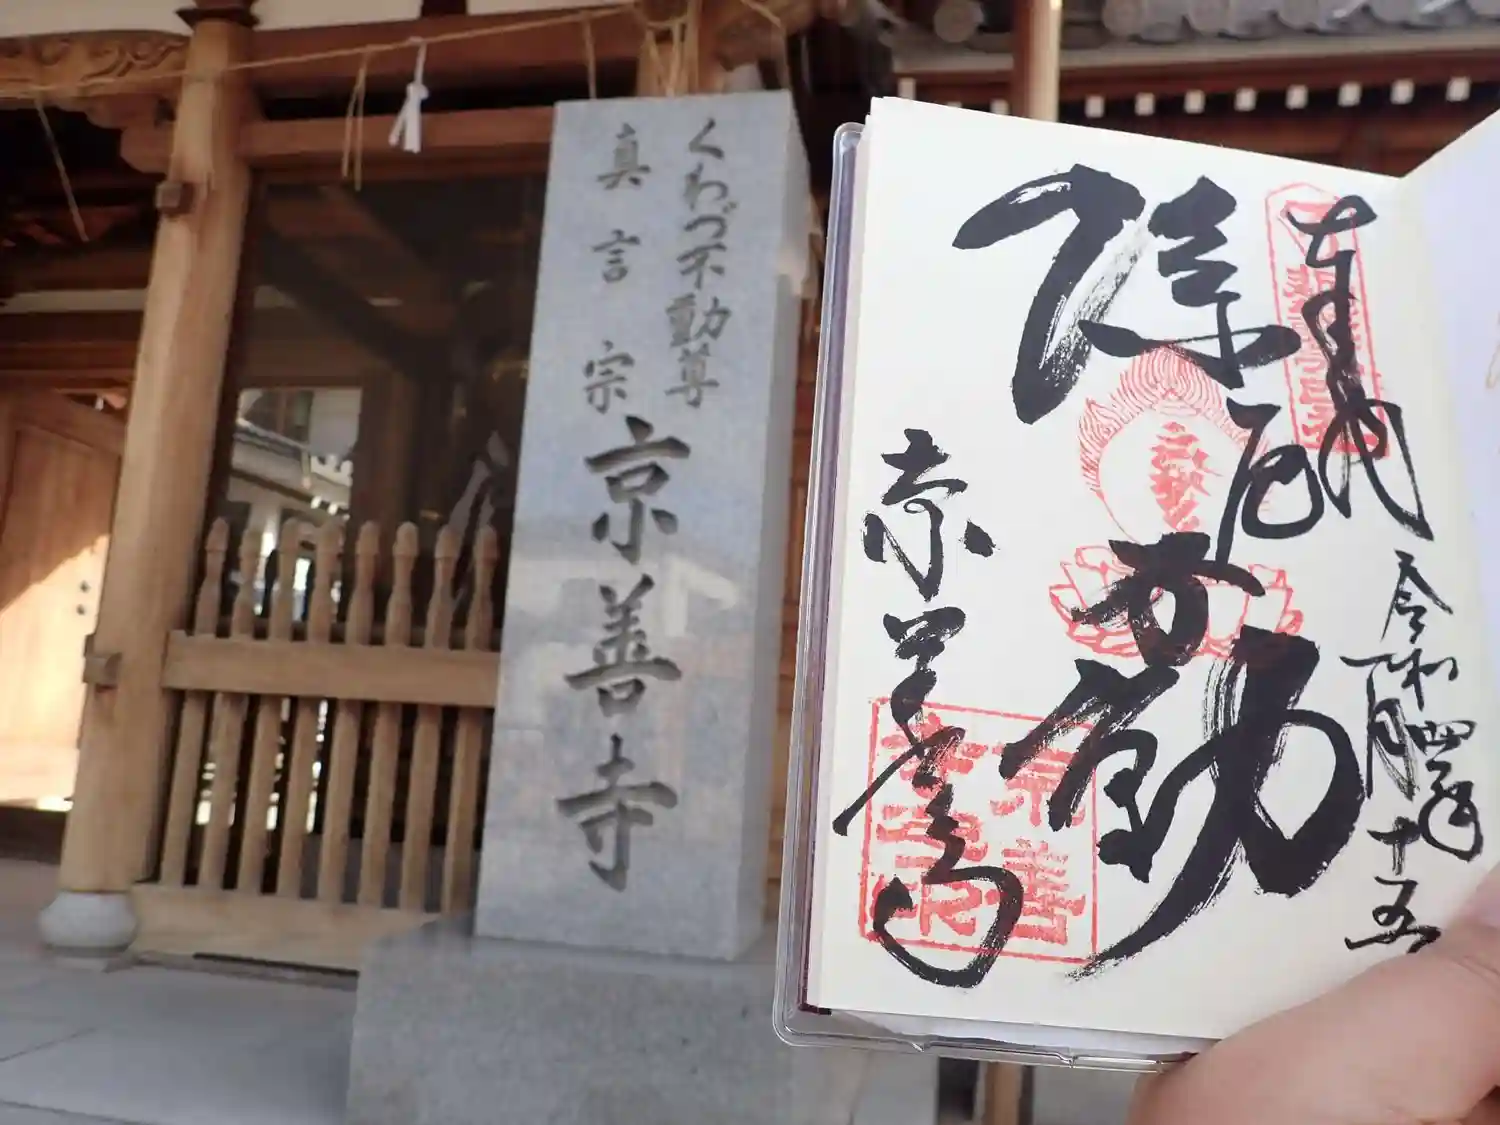 くわづ不動尊
真言宗
京善寺
奉拝
令和四年
一月十五
除厄
不動
京善寺
京善